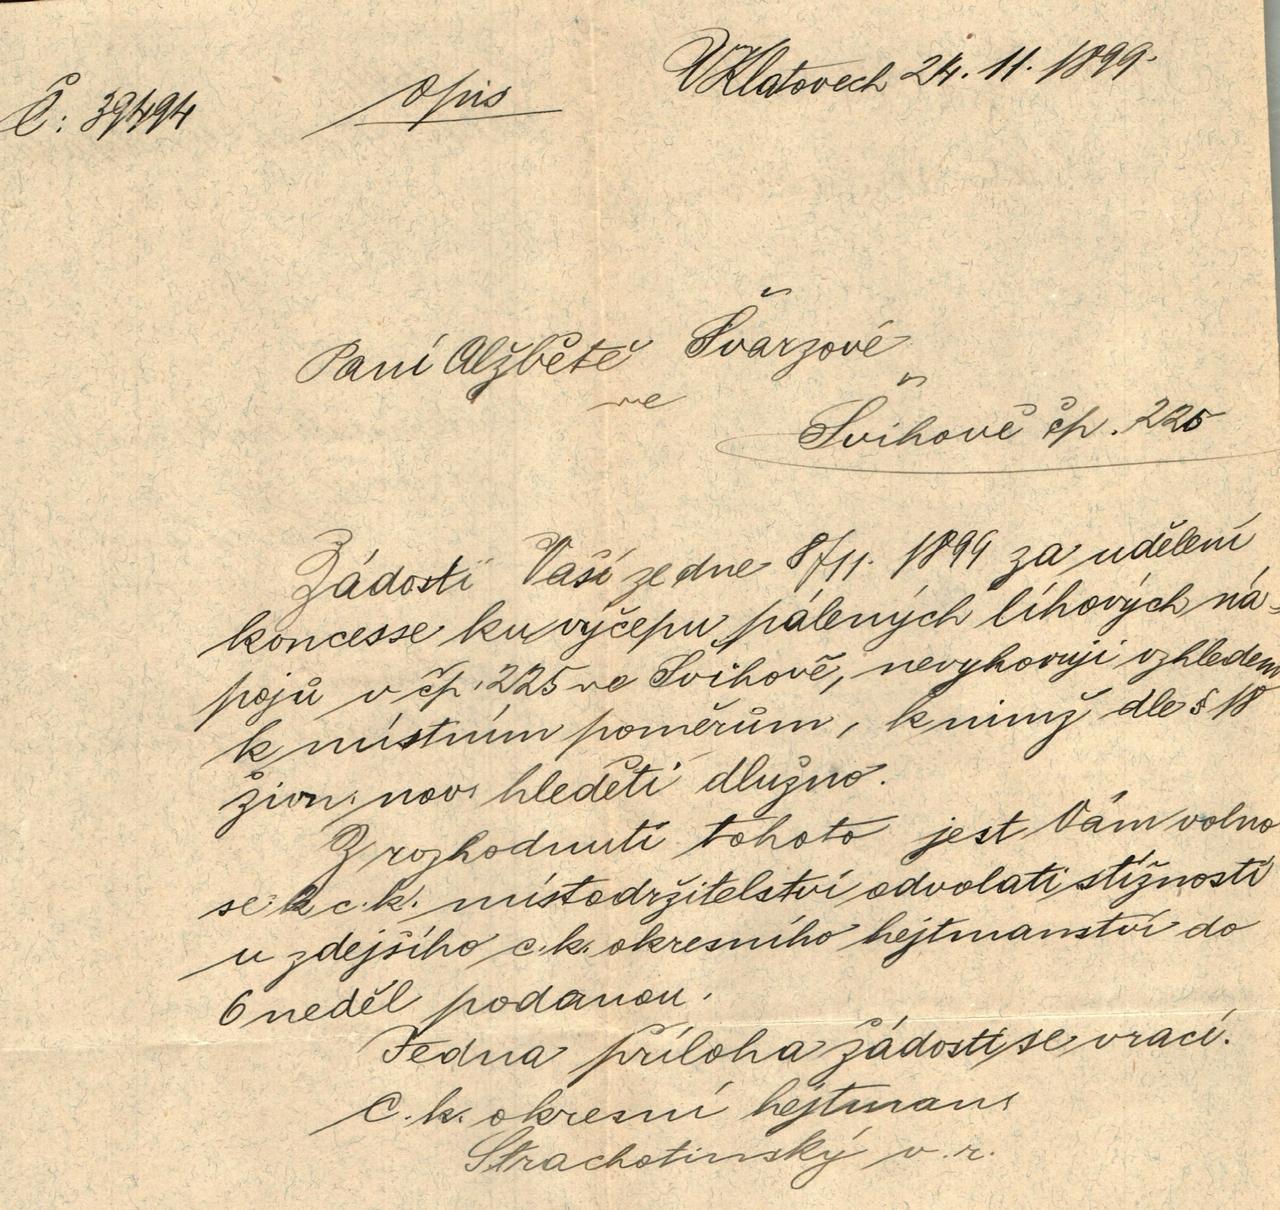 V Klatovech 24. 11. 1899.
Č: 39494
Opis
Paní Alžbětě Švarzové
ve
Švihově čp. 225
Žádosti Vaší ze dne 8/11. 1899 za udělení
koncesse ku výčepu pálených líhových ná-
pojů v čp. 225 ve Švihově, nevyhovuji vzhledem
k místním poměrům, k nimž dle § 18
živn. nov. hleděti dlužno.
Z rozhodnutí tohoto jest Vám volno
se k c. k. místodržitelství odvolati stížností
u zdejšího c. k. okresního hejtmanství do
6 neděl podanou.
Jedna příloha žádosti se vrací.
C. k. okresní hejtman:
Strachotinský v. r.